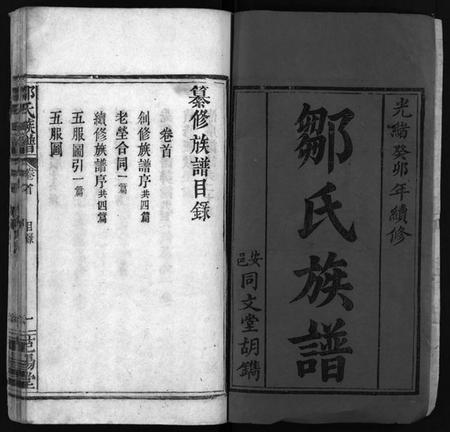 光緒癸卯年續修
鄒氏族譜
安邑同文堂胡鐫
纂修族譜目錄
卷首
創修族譜序共四篇
老塋合同一篇
續修族譜序共四篇
五服圖引一篇
五服圖
鄒氏族譜
卷首
目錄
一